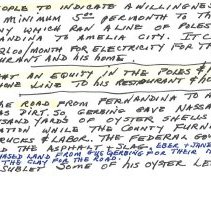 OPLE TO INDICATE A WILLINGNES
MINIMUM 5.00 PER MONTH TO TH
NY WHICH RAN A LINE OF POLES
NDINA TO AMELIA CITY. IT C
/MONTH FOR ELECTRICITY FOR T
URANT AND HIS HOME.
AT AN EQUITY IN THE POLES &
HONE LINE TO HIS RESTAURANT &
THE ROAD FROM FERNANDINA TO A
AS DIRT. SO GERBING GAVE NASSA
USAND YARDS OF OYSTER SHELLS
ATION WHILE THE COUNTY FURNI
RUCKS & LABOR. THE FEDERAL GOV
D THE ASPHALT & SLAG. EBER & JANE
HASED LAND FROM THE GERBING FOR THEIR
THE CLAY FOR THE ROAD.
SUBLET SOME OF HIS OYSTER LE